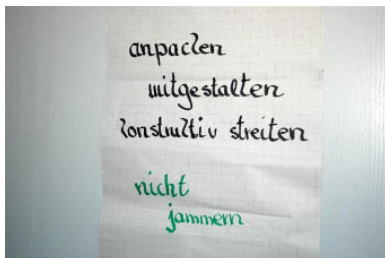 anpacken
mitgestalten
konstruktiv streiten
nicht
jammern